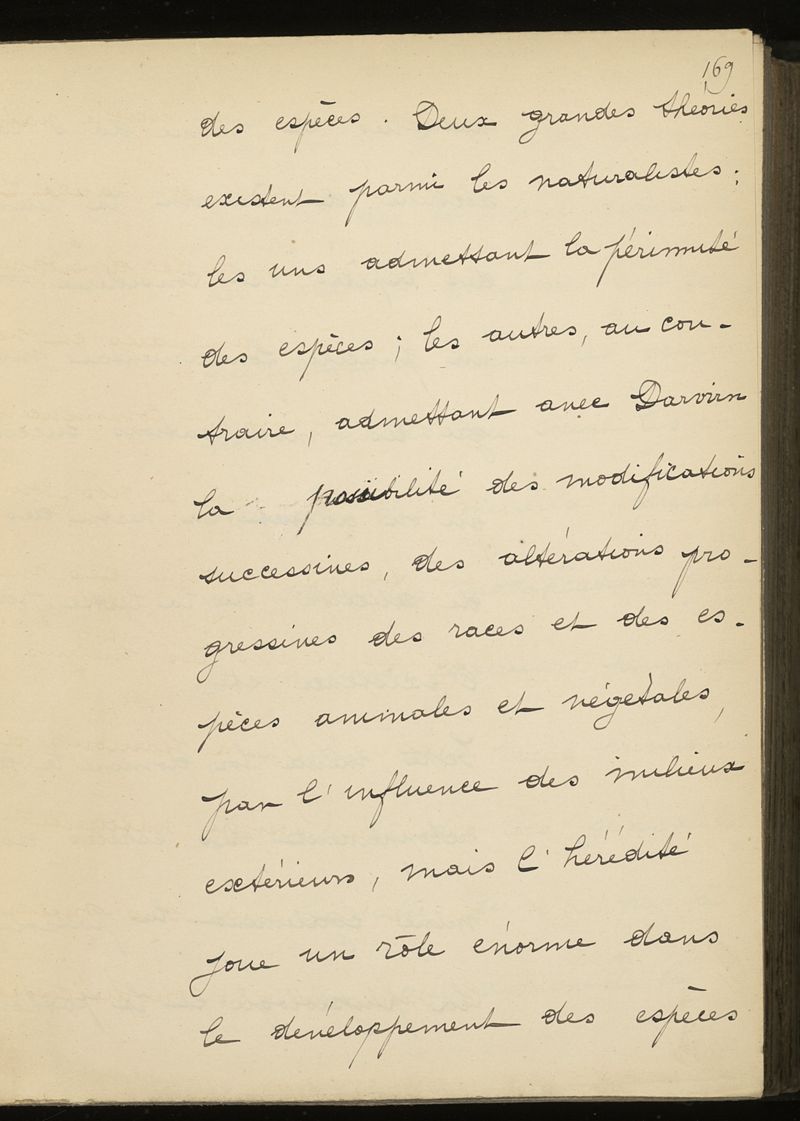 169
des espèces. Deux grandes théories
existent parmi les naturalistes :
les uns admettant la périnnité
des espèces ; les autres, au con-
traire, admettant avec Darwin
la possibilité des modifications
successives, des altérations pro-
gressives des races et des es-
pèces animales et végétales,
par l'influence des milieux
extérieurs, mais l'hérédité
joue un rôle énorme dans
le développement des espèces